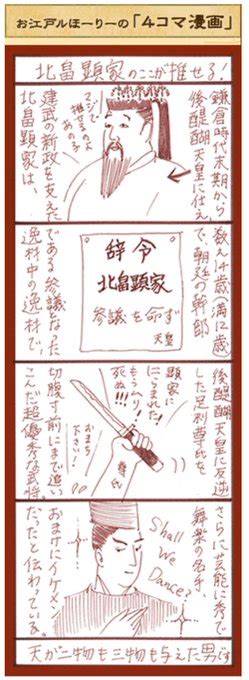 お江戸ルほーりーの「4コマ漫画」
北畠顕家のここが推せる!
鎌倉時代末期から
後醍醐天皇に仕え
マジで
推せるのよ
あの子
建武の新政を支えた
北畠顕家は、
数え14歳(満12歳)
で、朝廷の幹部
辞令
北畠顕家
参議を命ず
天皇
である参議になった
逸材中の逸材で、
後醍醐天皇に反逆
した足利尊氏を、
顕家に
にらまれた!
もうムリ!
死ぬ!!!
尊氏
おまち
下さい!
切腹寸前にまで追い
こんだ超優秀な武将。
さらに、芸能に秀で
舞楽の名手、
Shall
We
Dance?
おまけにイケメン
だったと伝わっている。
天が二物も三物も与えた男です